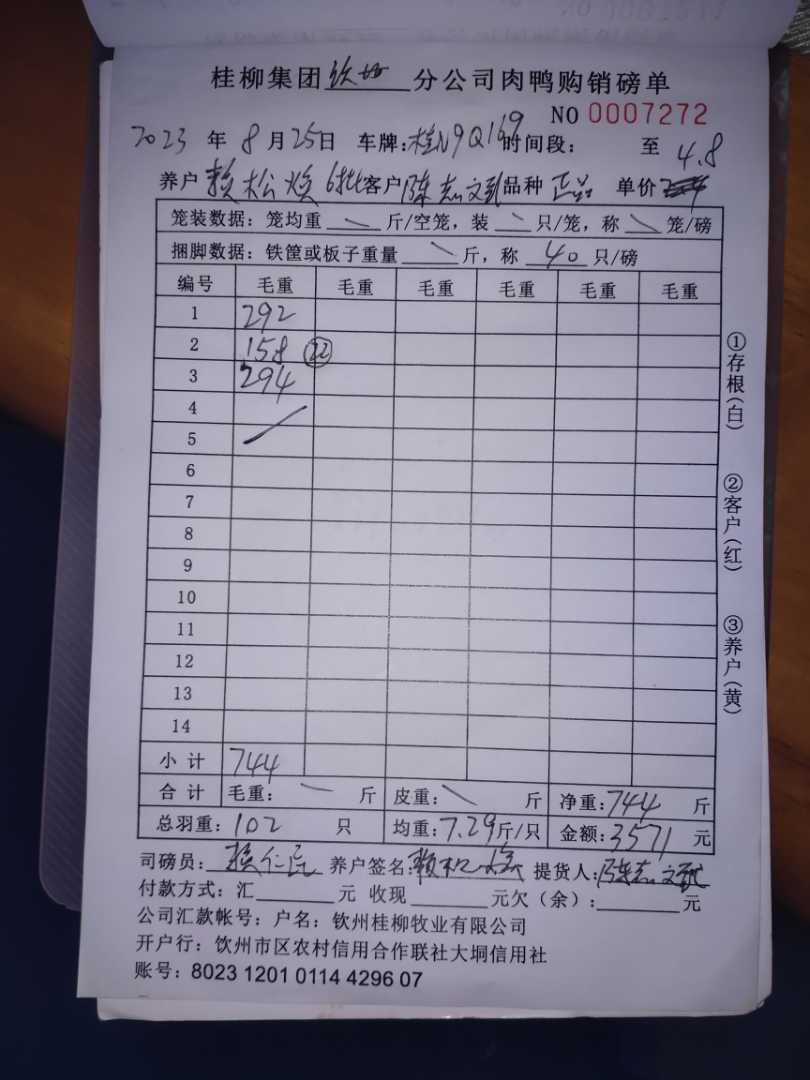 桂柳集团钦州分公司肉鸭购销磅单
NO 0007272
2023年8月25日 车牌:桂N9Q169 时间段: 至
4.8
养户 赖松焕 6批 客户 陈志文 品种 正品 单价
笼装数据:笼均重 斤/空笼,装 只/笼,称 笼/磅
捆脚数据:铁筐或板子重量 斤,称 40 只/磅
编号 毛重 毛重 毛重 毛重 毛重 毛重
1 292
2 158 22
3 294
4
5
6
7
8
9
10
11
12
13
14
小计 744
合计 毛重: 斤 皮重: 斤 净重:744 斤
总羽重:102 只 均重:7.29斤/只 金额:3571元
司磅员: 赖仁 养户签名:赖松焕 提货人:陈志文
付款方式:汇 元 收现 元欠(余): 元
公司汇款帐号:户名:钦州桂柳牧业有限公司
开户行:钦州市区农村信用合作联社大垌信用社
账号:8023 1201 0114 4296 07
①存根(白)
②客户(红)
③养户(黄)